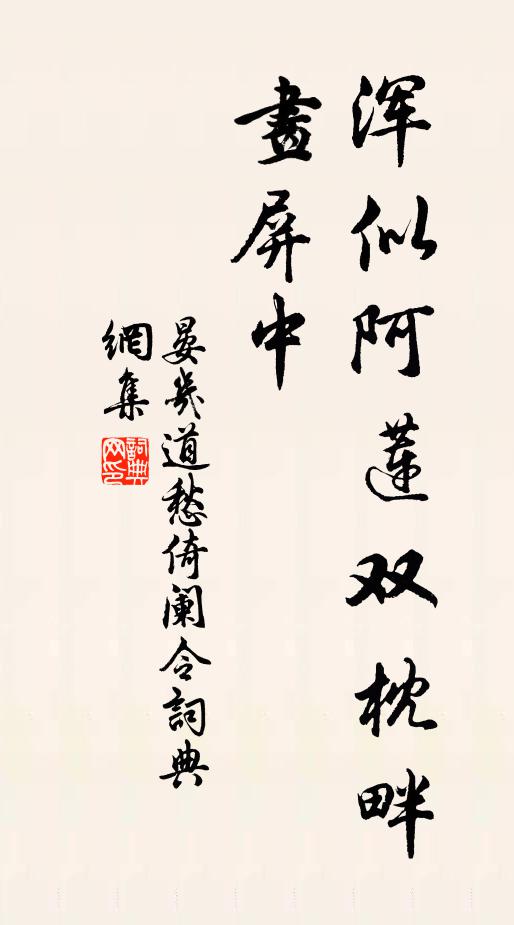 浑似阿蓮双枕畔
畫屏中
晏幾道愁倚阑令詞典
網集
詞典
网印